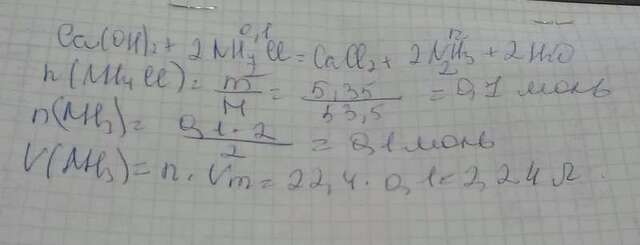 0,1 n
Ca(OH)₂ + 2NH₄Cl = CaCl₂ + 2NH₃ + 2H₂O
2 2
n(NH₄Cl) = m/M = 5,35/53,5 = 0,1 моль
n(NH₃) = 0,1·2/2 = 0,1 моль
V(NH₃) = n·Vm = 22,4·0,1 = 2,24 л.